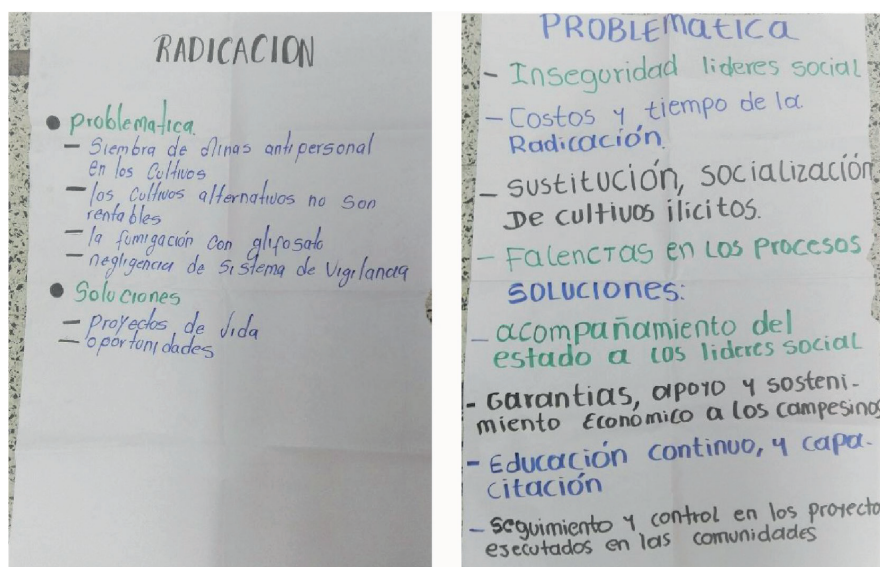 RADICACION
● problematica.
- Siembra de Minas antipersonal
en los Cultivos
- los Cultivos alternativos no son
rentables
- la fumigación con glifosato
- negligencia de Sistema de Vigilancia
● Soluciones
- proyectos de vida
- oportunidades
PROBLEMATICA
- Inseguridad lideres social
- Costos y tiempo de la
Radicación.
- Sustitución, socialización
De cultivos ilicitos.
- Falencias en los procesos
SOLUCIONES:
- acompañamiento del
estado a los lideres social
- Garantias, apoyo y sosteni-
miento Económico a los campesinos
- Educación continuo, y capa-
citación
- seguimiento y control en los proyecto
esecutados en las comunidades